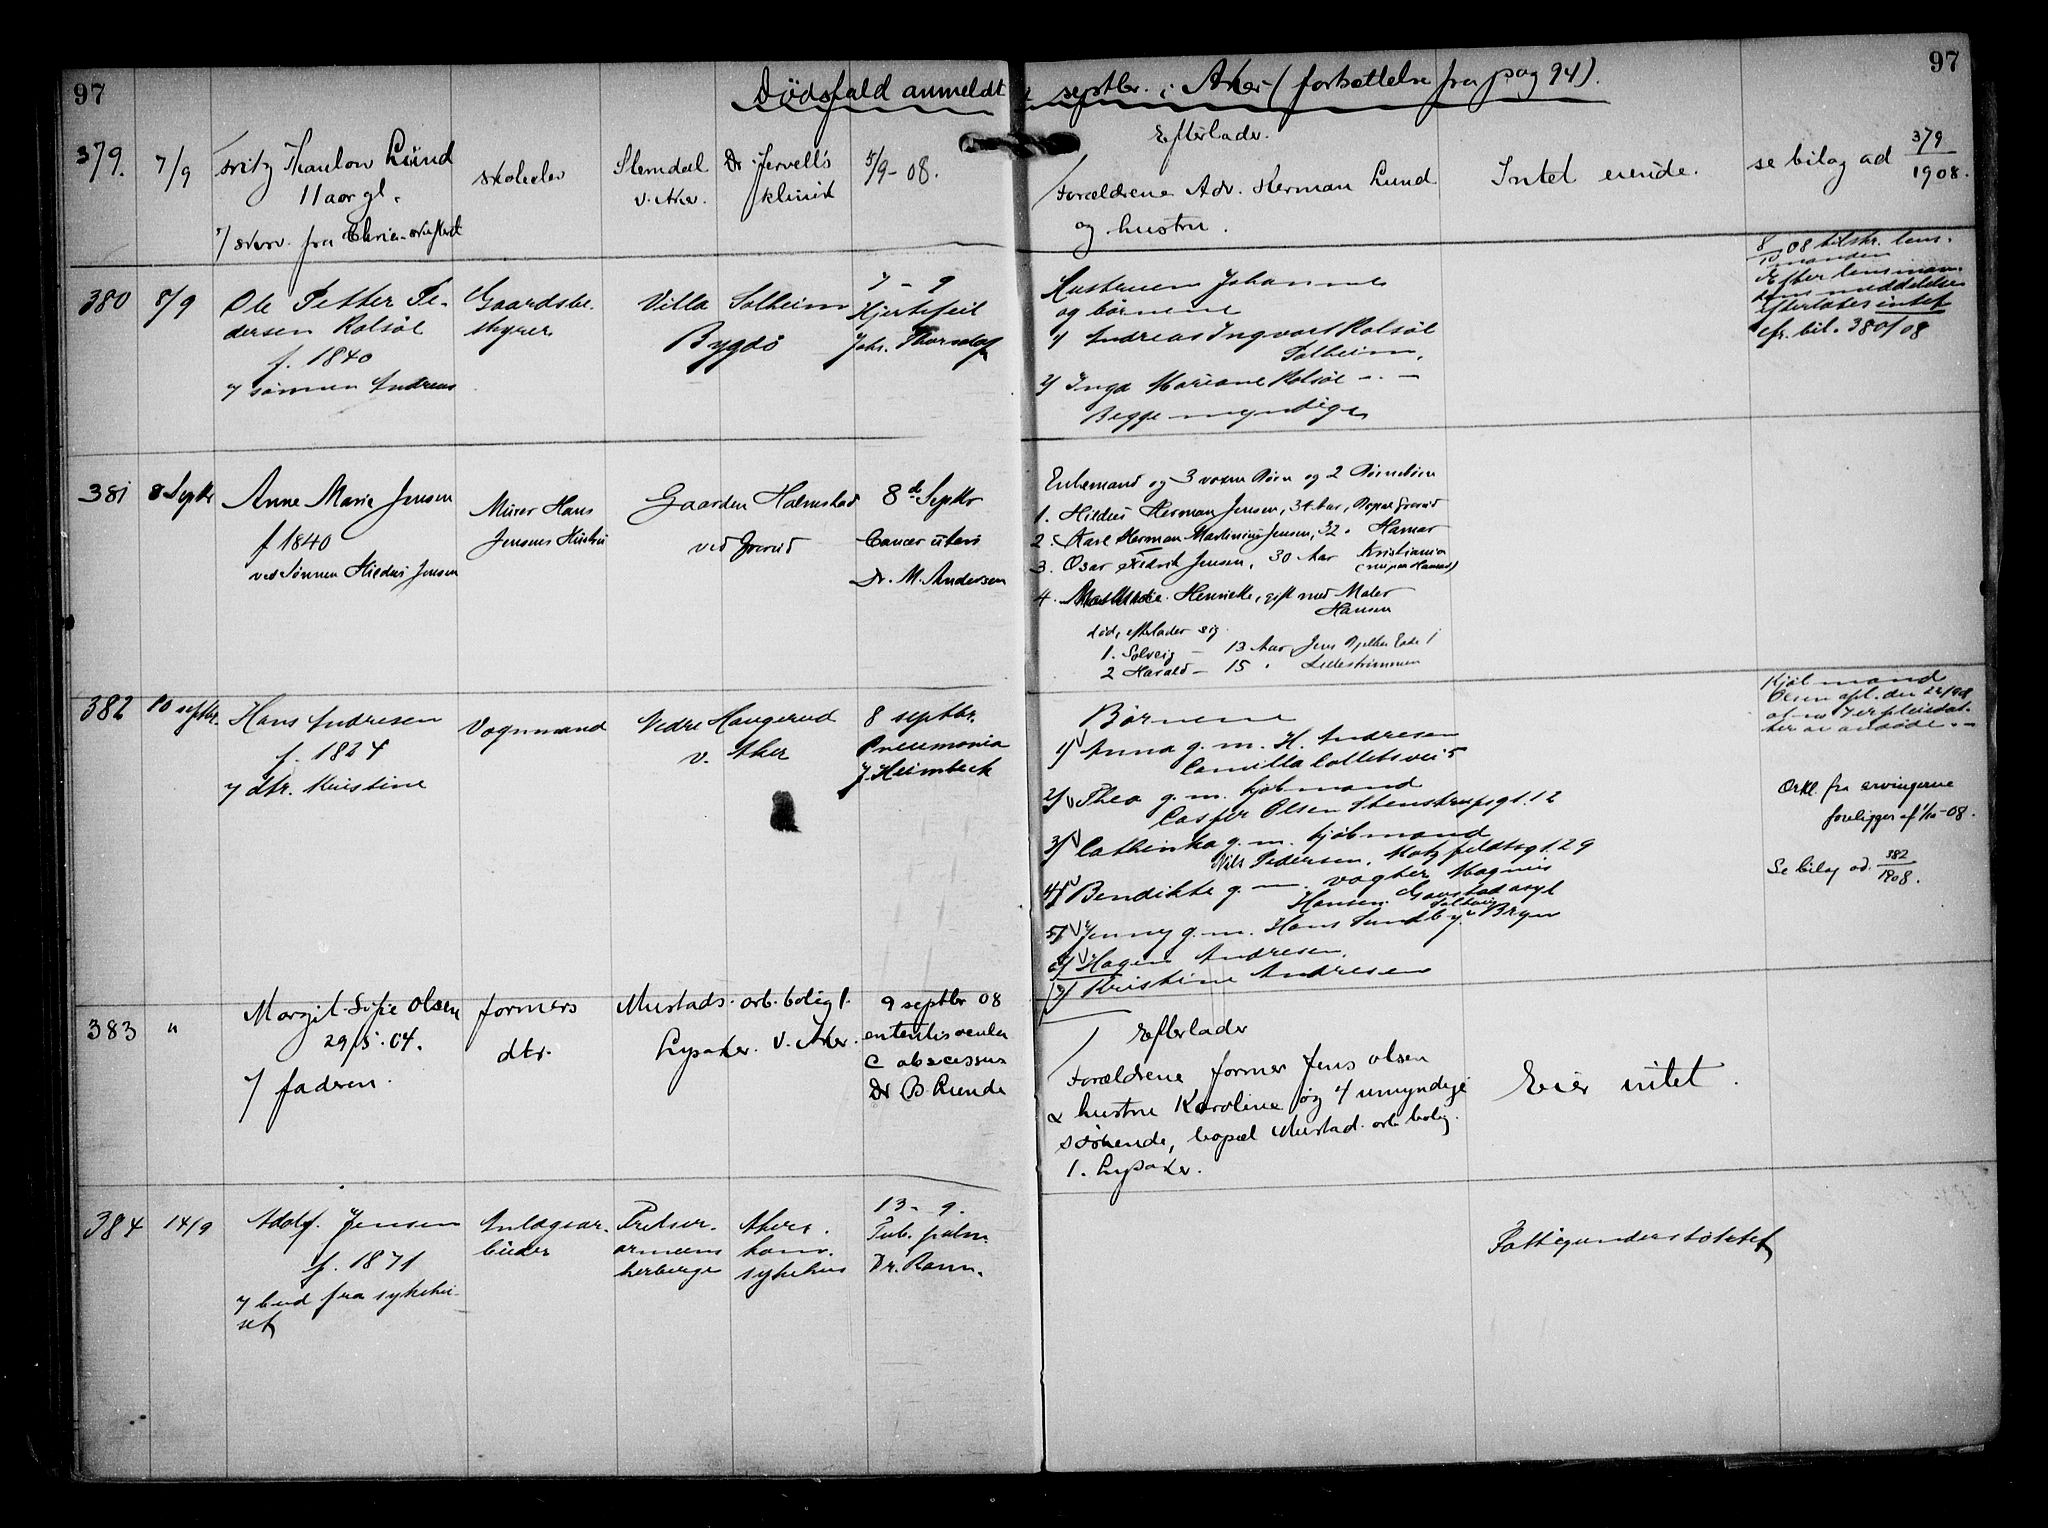 97
Dødsfald anmeldt i septbr. i Aker (fortsættelse fra pag 94).
97
379.
7/9
Fritz Thaulow Lund
11 aar gl.
v/ skrv. fra Chria. skifteret
skoleelev
Slemdal
v. Aker.
Dr Jervell's
klinik
5/9-08.
Efterlader.
Forældrene Adv. Herman Lund
og hustru.
Intet eiende.
se bilag ad 379/1908.
380
8/9
Ole Petter Pe-
dersen Rolsøe
f. 1840
v/ sønnen Andreas
Gaardsbe-
styrer
Villa Solheim
Bygdø
7 - 9
Hjertefeil
Johs.
Hustruen Johanne
og børnene
1/ Andreas Ingvart Rolsøe
Solheim,
2/ Inga Mariane Rolsøe - . -
Begge myndige
8/10 08 tilskr. lens-
manden
Efter lensman-
dens meddelelse
efterlates intet
cfr. bil. 380/08
381
8 Septbr
Anne Marie Jensen
f 1840
ved Sønnen Hildus Jensen
Murer Hans
Jensens Hustru
Gaarden Holmstad
ved Grorud
8de Septbr
Cancer uteri
Dr. M. Andersen
Enkemand og 3 voxne Børn og 2 Børnebørn
1. Hildus Herman Jensen, 34 Aar, Bopæl Grorud
2. Karl Herman Martinius Jensen, 32 " Hamar
3. Oscar Fredrik Jensen, 30 Aar Kristiania
4. Henriette, gift med Maler
Hansen
død, efterlader sig
1. Solveig - 13 Aar Jens Bjelkes Gade 1
2 Harald - 15 " Lillestrømmen
382
10 septbr.
Hans Andresen
f. 1824
v/ dtr. Kristine
Vognmand
Nedre Haugerud
v. Aker
8 septbr.
Pneumonia
J. Heimbeck
Børnene
1/ Anna g. m. H. Andresen
Camilla Colletsvei 5
2/ Thea g. m. kjøbmand
Casper Olsen Stenstrupsgt. 12
3/ Cathinka g. m. kjøbmand
Nils Pedersen, Motzfeldtsgt. 29
4/ Bendikte g - . vogter Magnus
Hansen. Gaustad asyl
5/ Jenny g. m. Hans Sundby. Solberg Bryn
6/ Hagen Andresen.
7/ Kristine Andresen
Kjøbmand
Olsen opl. den
Erkl. fra arvingerne
foreligger af 1/10-08.
Se bilag ad. 382/1908.
383
"
Margit Sofie Olsen
29/5-04.
v/ faderen.
formers
dtr.
Mustads. arb. bolig 1.
Lysaker. v. Aker.
9 septbr 08
c abscessus
Dr B Lunde
Efterlader
Forældrene former Jens Olsen
& hustru Karoline og 4 umyndige
søskende, bopæl Mustad. arb bolig.
1. Lysaker.
Eier intet.
384
14/9
Adolf. Jensen
f. 1871
v/ bud fra sykehu-
set
Anlægsar-
beider
Frelser-
armeens
herberge
Akers.
kom.
sykehus
13 - 9.
Tub. pulm.
Dr. Ravn.
Fattigunderstøttet